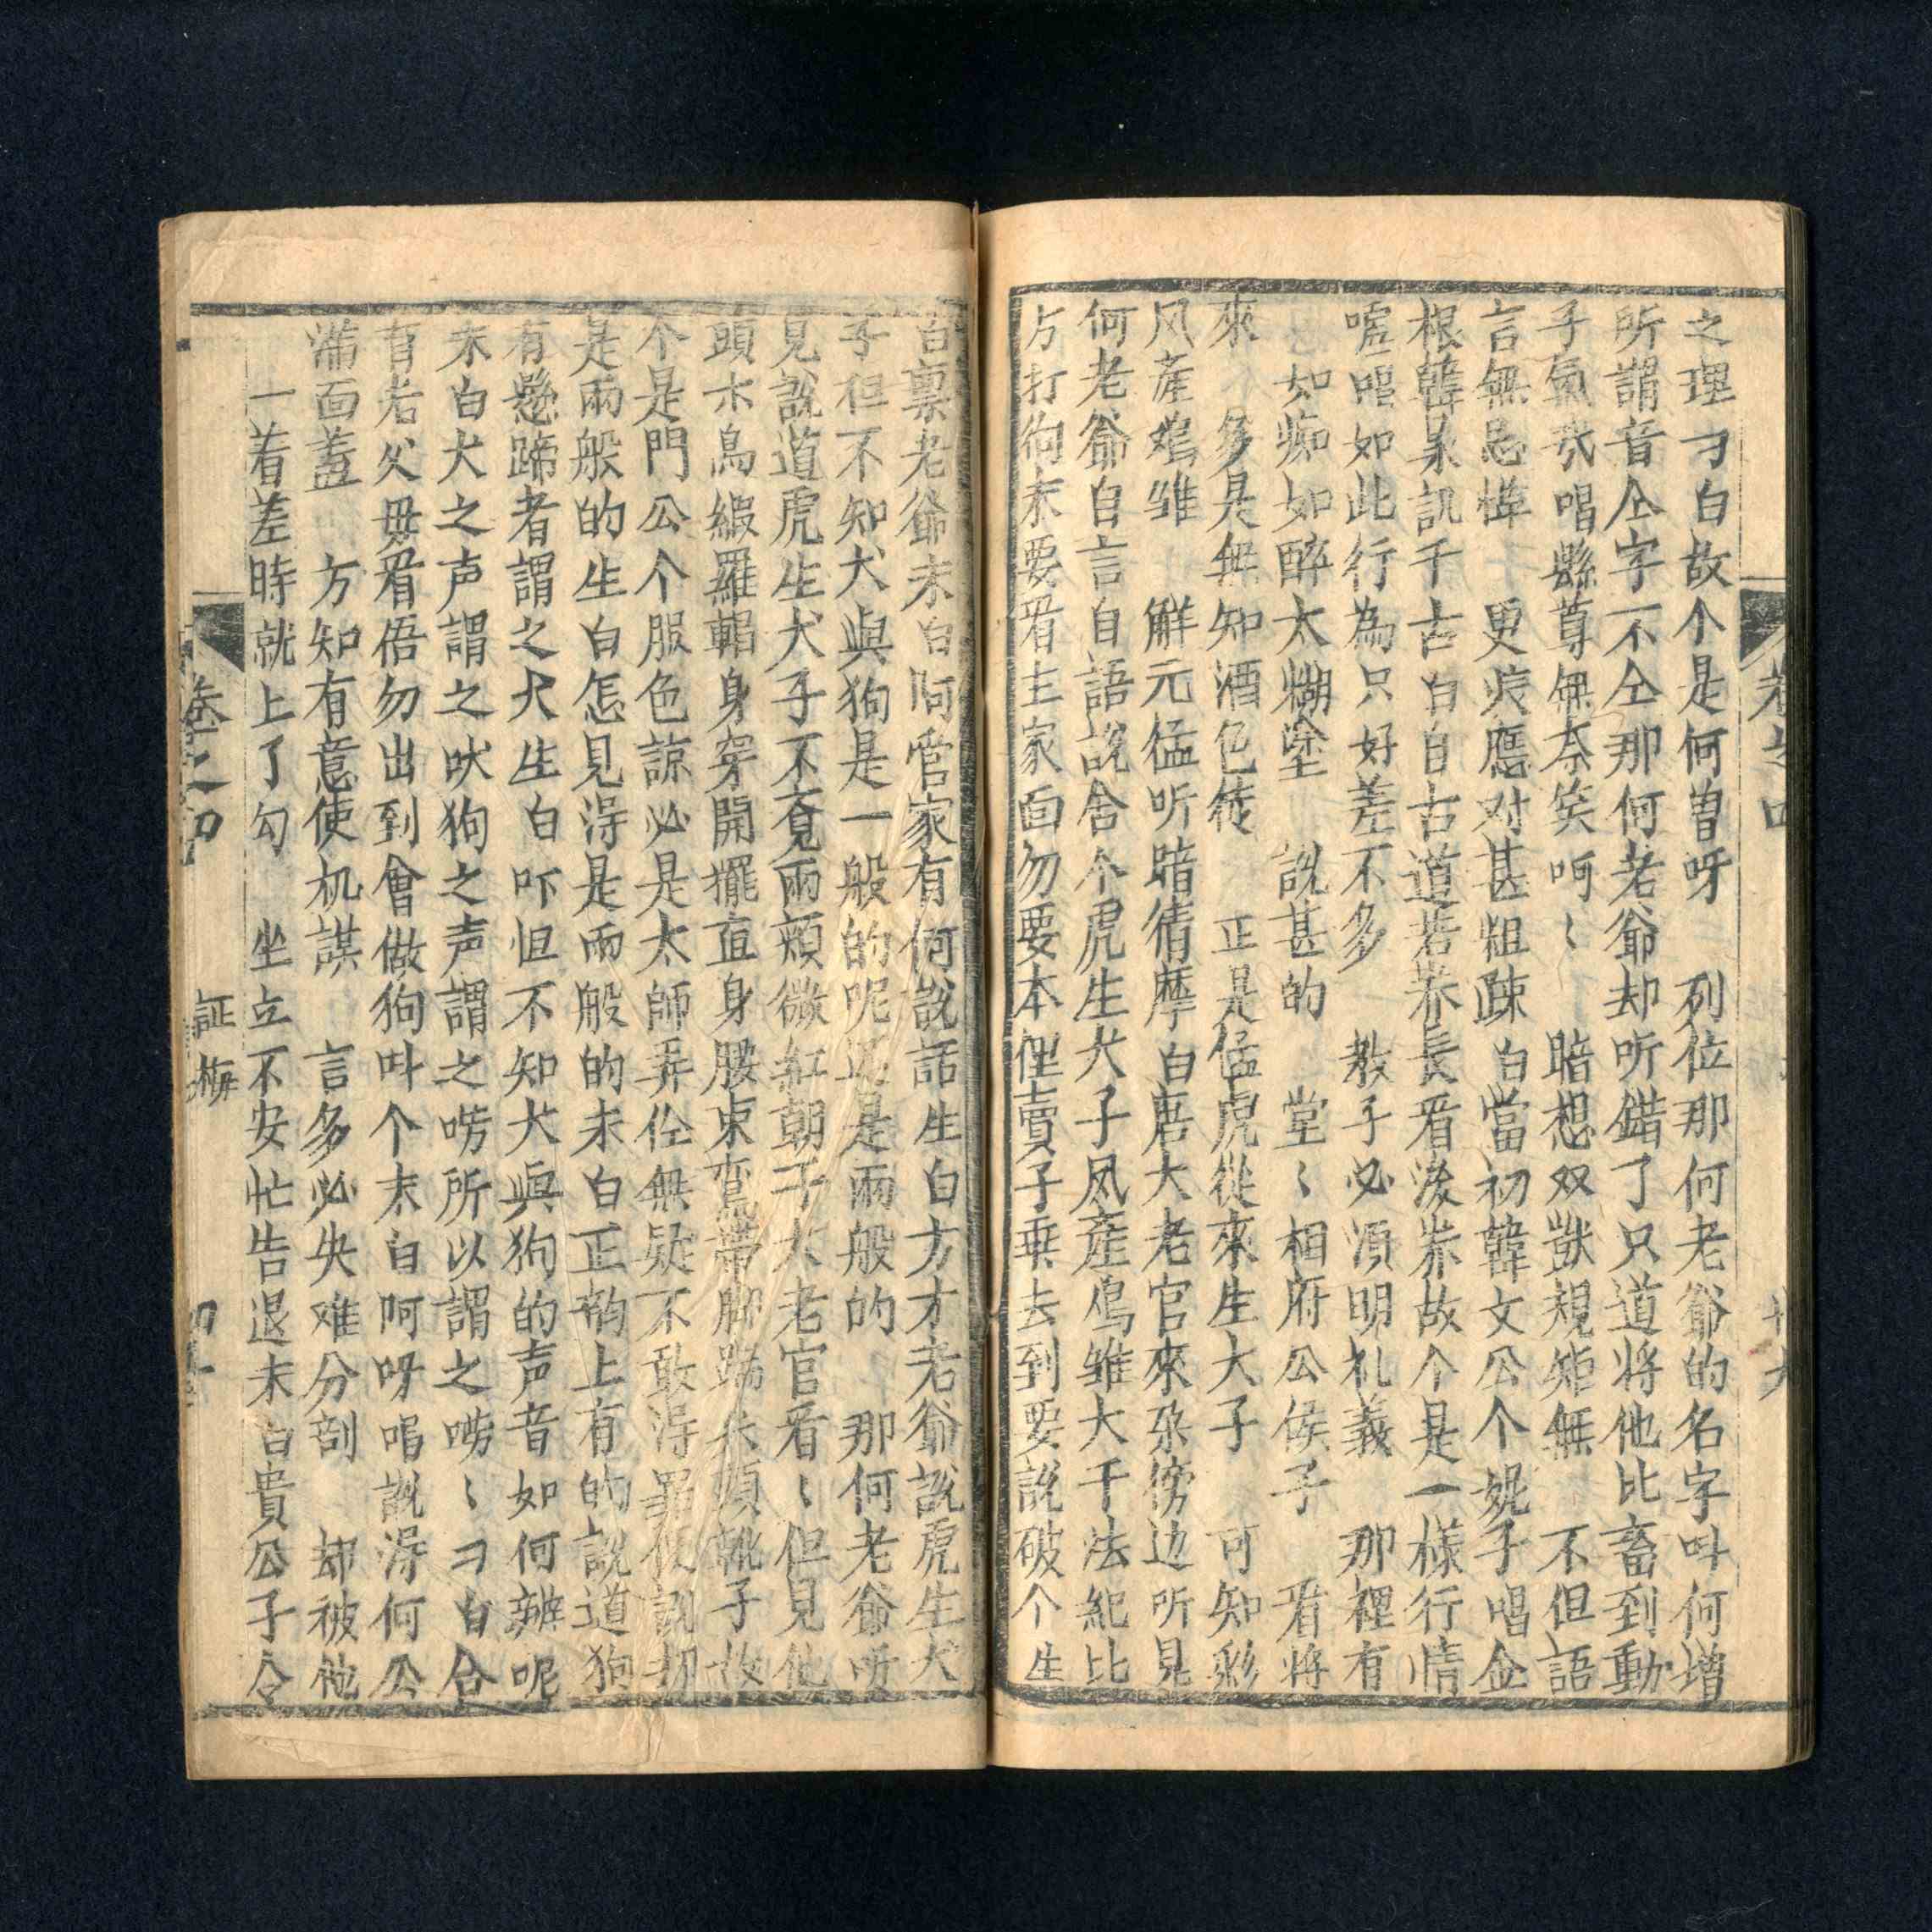 之理刁白故个是何曽呀　列位那何老爺的名字叫何増
所謂音仝字不仝那何老爺却听錯了只道将他比畜到動
子氣我唱縣尊無奈笑呵〻　暗想双獣規矩無　不但語
言無忌憚　更災應对甚粗疎　白當初韓文公个妮子唱金
根韓杲訊千古白白古道若养長看後养故个是一樣行情
嘘唱如此行為只好差不多　教子必湏明礼義　那裡有
如痴如醉太糊塗　説甚的　堂〻相府公侯子　看将
來　多是無知酒色徒　正是猛虎從來生犬子　可知彩
风産鴉雏　解元猛听暗猜摩　白唐大老官來朶傍边所見
何老爺自言自語説舍个虎生犬子风産鳥雏大千法紀比
方打狗末要看主家面勿要本俚賣子乗去到要説破个生
白禀老爺末白阿管家有何説話生白方才老爺説虎生犬
子但不知犬與狗是一般的呢还是兩般的　那何老爺听
見説道虎生犬子不覔兩頰微紅朝子大老官看〻但見他
頭木烏縀羅輻身穿開擺直身腰束鸞帯脚踏夫頭靴子故
个是門公个服色諒必是太師弄伦無疑不敢得罪便説切
是兩般的生白怎見得是兩般的末白正韵上有的説道狗
有懸蹄者謂之犬生白吓但不知犬與狗的声音如何辨呢
末白犬之声謂之吠狗之声謂之嘮所以謂之嘮〻刁白合
盲老父毋看俉勿出到會做狗叫个末白呵呀唱説得何公
满面羞　方知有意使机謀　言多必失难分剖　却被他
一着差時就上了勾　坐立不安忙告退末白貴公子令
証梅